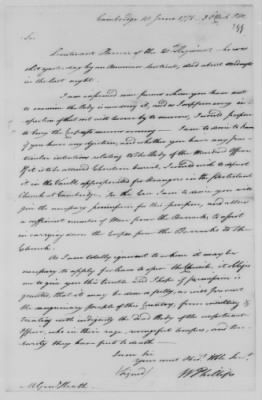 Cambridge 18 June 1778. 3 oClock P.M.
Sir
Lieutenant Brown of the 21st Regiment, he was
shot yesterday by an American Centinel, died about midnight
in the last night.
I am informed some forms where you have sent
to examine the Body is now doing it, and as I suppose any in-
spection of that sort will be over by to morrow, I would propose
to bury the Corpse to morrow evening — I am to desire to know
if you have any Objection, and whether you have any par-
ticular intention relating to the Body of the Murdered Officer
If it is to be allowed Christian burial, I would wish to deposit
it in the Vault appropriated for Strangers in the Protestant
Church at Cambridge. In this Case I am to desire you will
give the necessary permission for this purpose, and allow
a sufficient number of Men from the Barracks to assist
in carrying down the Corpse from the Barracks to the
Church.
As I am totally ignorant to whom it may be
necessary to apply for leave to open the Church, it obliges
me to give you this trouble and I hope if permission is
granted, that it may be done as a
the sanguinary people of this Country, from
treating with indignity the Dead Body of the unfortunate
Officer, who in their rage
they have put to death —
I am Sir
Your most Obed. Hble Ser.
Signed W Phillips
M Genl Heath